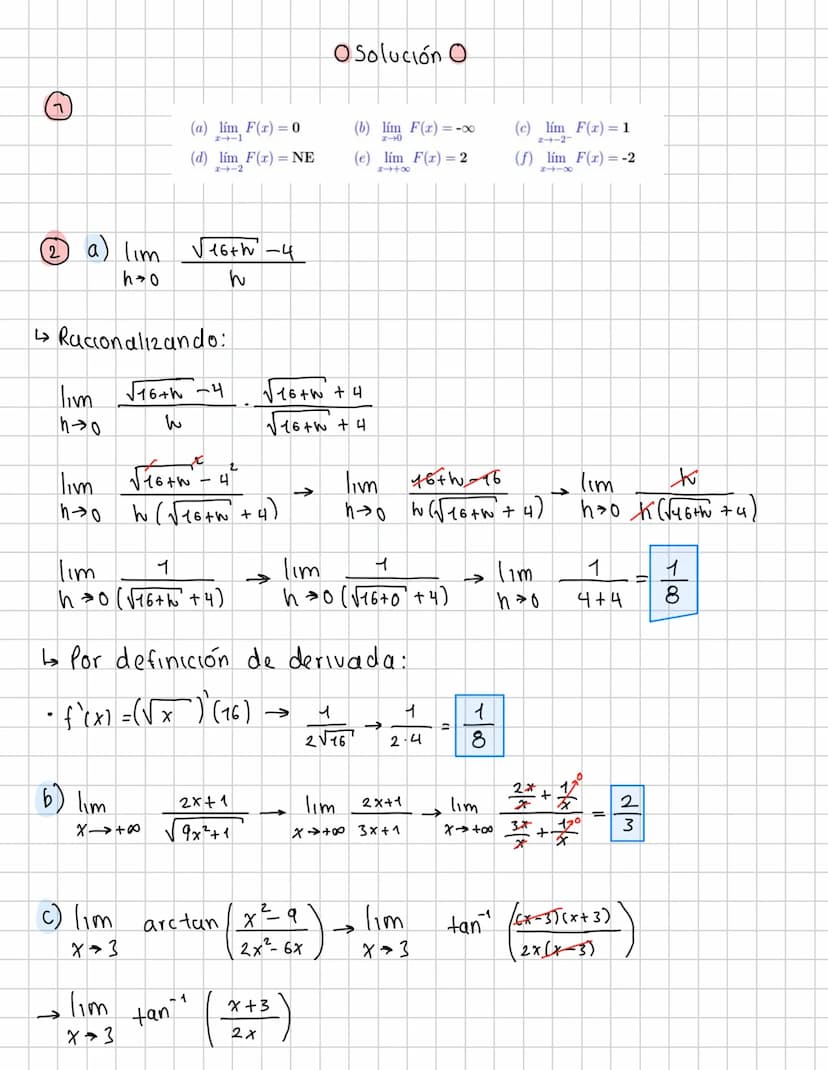 Solución
1
(a) lím x→-1 F(x) = 0 (b) lím x→0 F(x) = -∞ (c) lím x→-2⁻ F(x) = 1
(d) lím x→-2 F(x) = NE (e) lím x→+∞ F(x) = 2 (f) lím x→-∞ F(x) = -2
2 a) lim h→0 (√(16+h) - 4)/h
↳ Racionalizando:
lim h→0 (√(16+h) - 4)/h · (√(16+h) + 4)/(√(16+h) + 4)
lim h→0 (√(16+h)² - 4²)/(h(√(16+h) + 4)) → lim h→0 (16+h-16)/(h(√(16+h) + 4)) → lim h→0 h/(h(√(16+h) + 4))
lim h→0 1/(√(16+h) + 4) → lim h→0 1/(√(16+0) + 4) → lim h→0 1/(4+4) = 1/8
↳ Por definición de derivada:
· f'(x) = (√x)'(16) → 1/(2√16) → 1/(2·4) = 1/8
b) lim x→+∞ (2x+1)/√(9x²+1) → lim x→+∞ (2x+1)/(3x+1) → lim x→+∞ (2x/x + 1/x →0)/(3x/x + 1/x →0) = 2/3
c) lim x→3 arctan((x²-9)/(2x²-6x)) → lim x→3 tan⁻¹((x-3)(x+3)/(2x(x-3)))
→ lim x→3 tan⁻¹((x+3)/(2x))